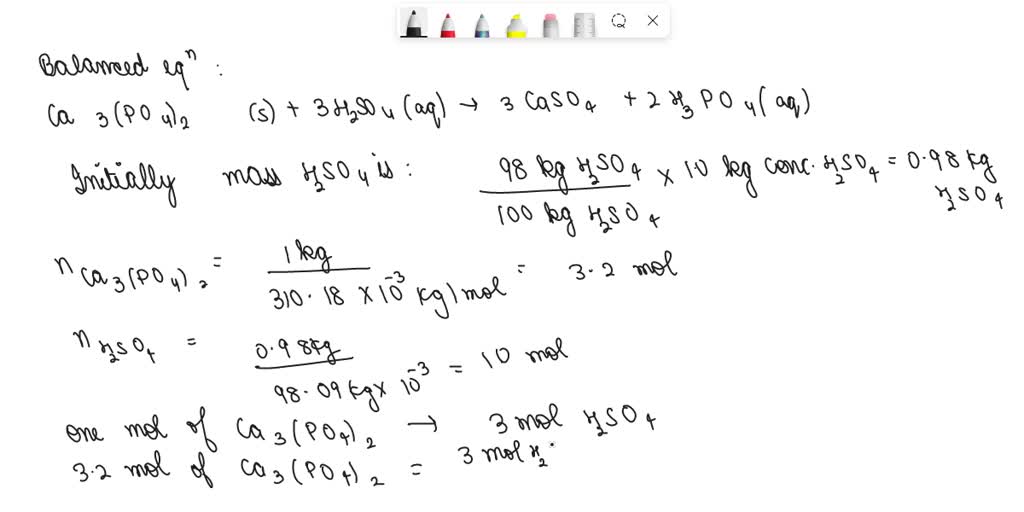 Balanced eqⁿ :
Ca 3(PO4)2 (s) + 3H2SO4(aq) → 3 CaSO4 + 2 H3PO4(aq)
Initially mass H2SO4 is : 98 kg H2SO4 / 100 kg H2SO4 × 10 kg conc. H2SO4 = 0.98 kg H2SO4
n Ca3(PO4)2 = 1 kg / 310.18 × 10⁻³ kg/mol = 3.2 mol
n H2SO4 = 0.98 kg / 98.09 kg × 10⁻³ = 10 mol
one mol of Ca3(PO4)2 → 3 mol H2SO4
3.2 mol of Ca3(PO4)2 = 3 mol H2